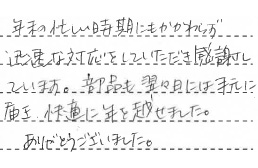 年末の忙しい時期にもかかわらず
迅速な対応をしていただき感謝し
ています。部品も翌々日には手元に
届き、快適に年を越せました。
ありがとうございました。